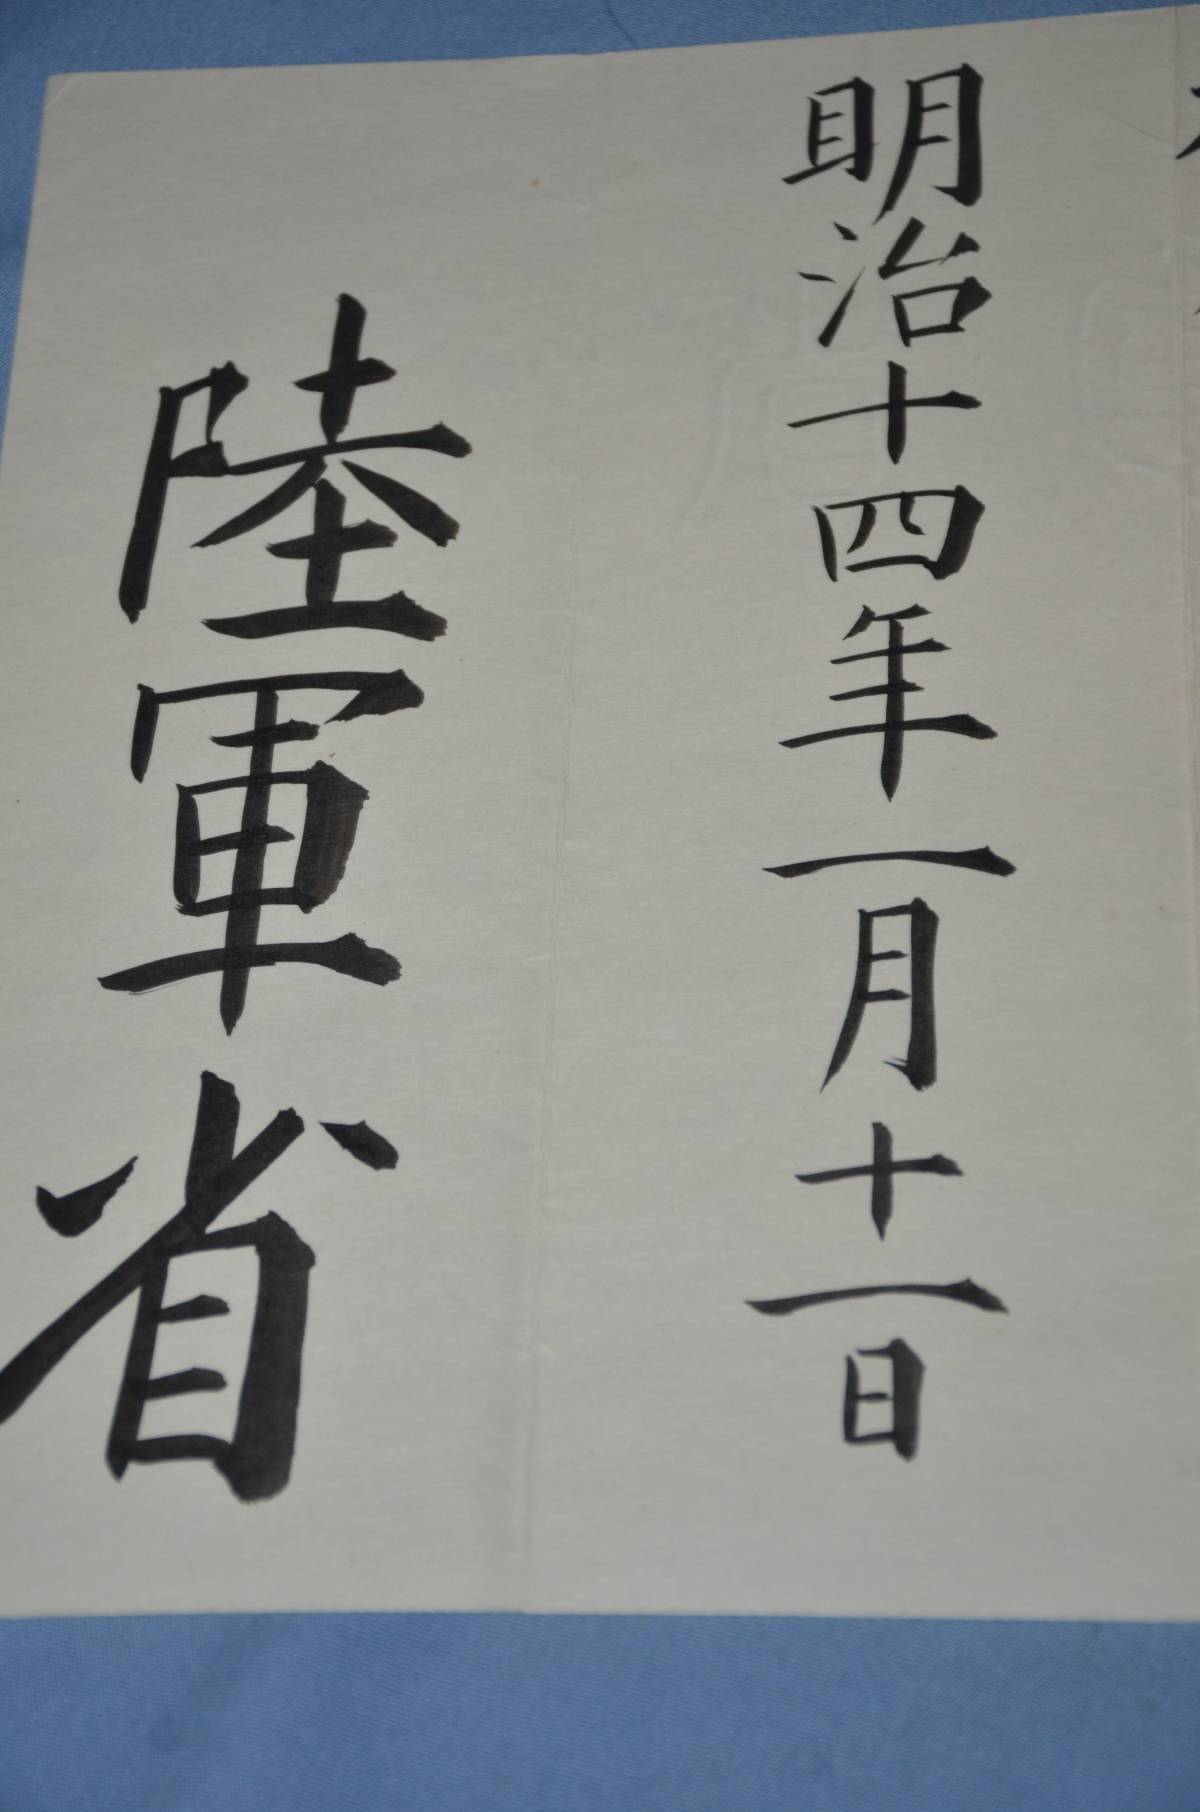 明治十四年一月十一日
陸軍省